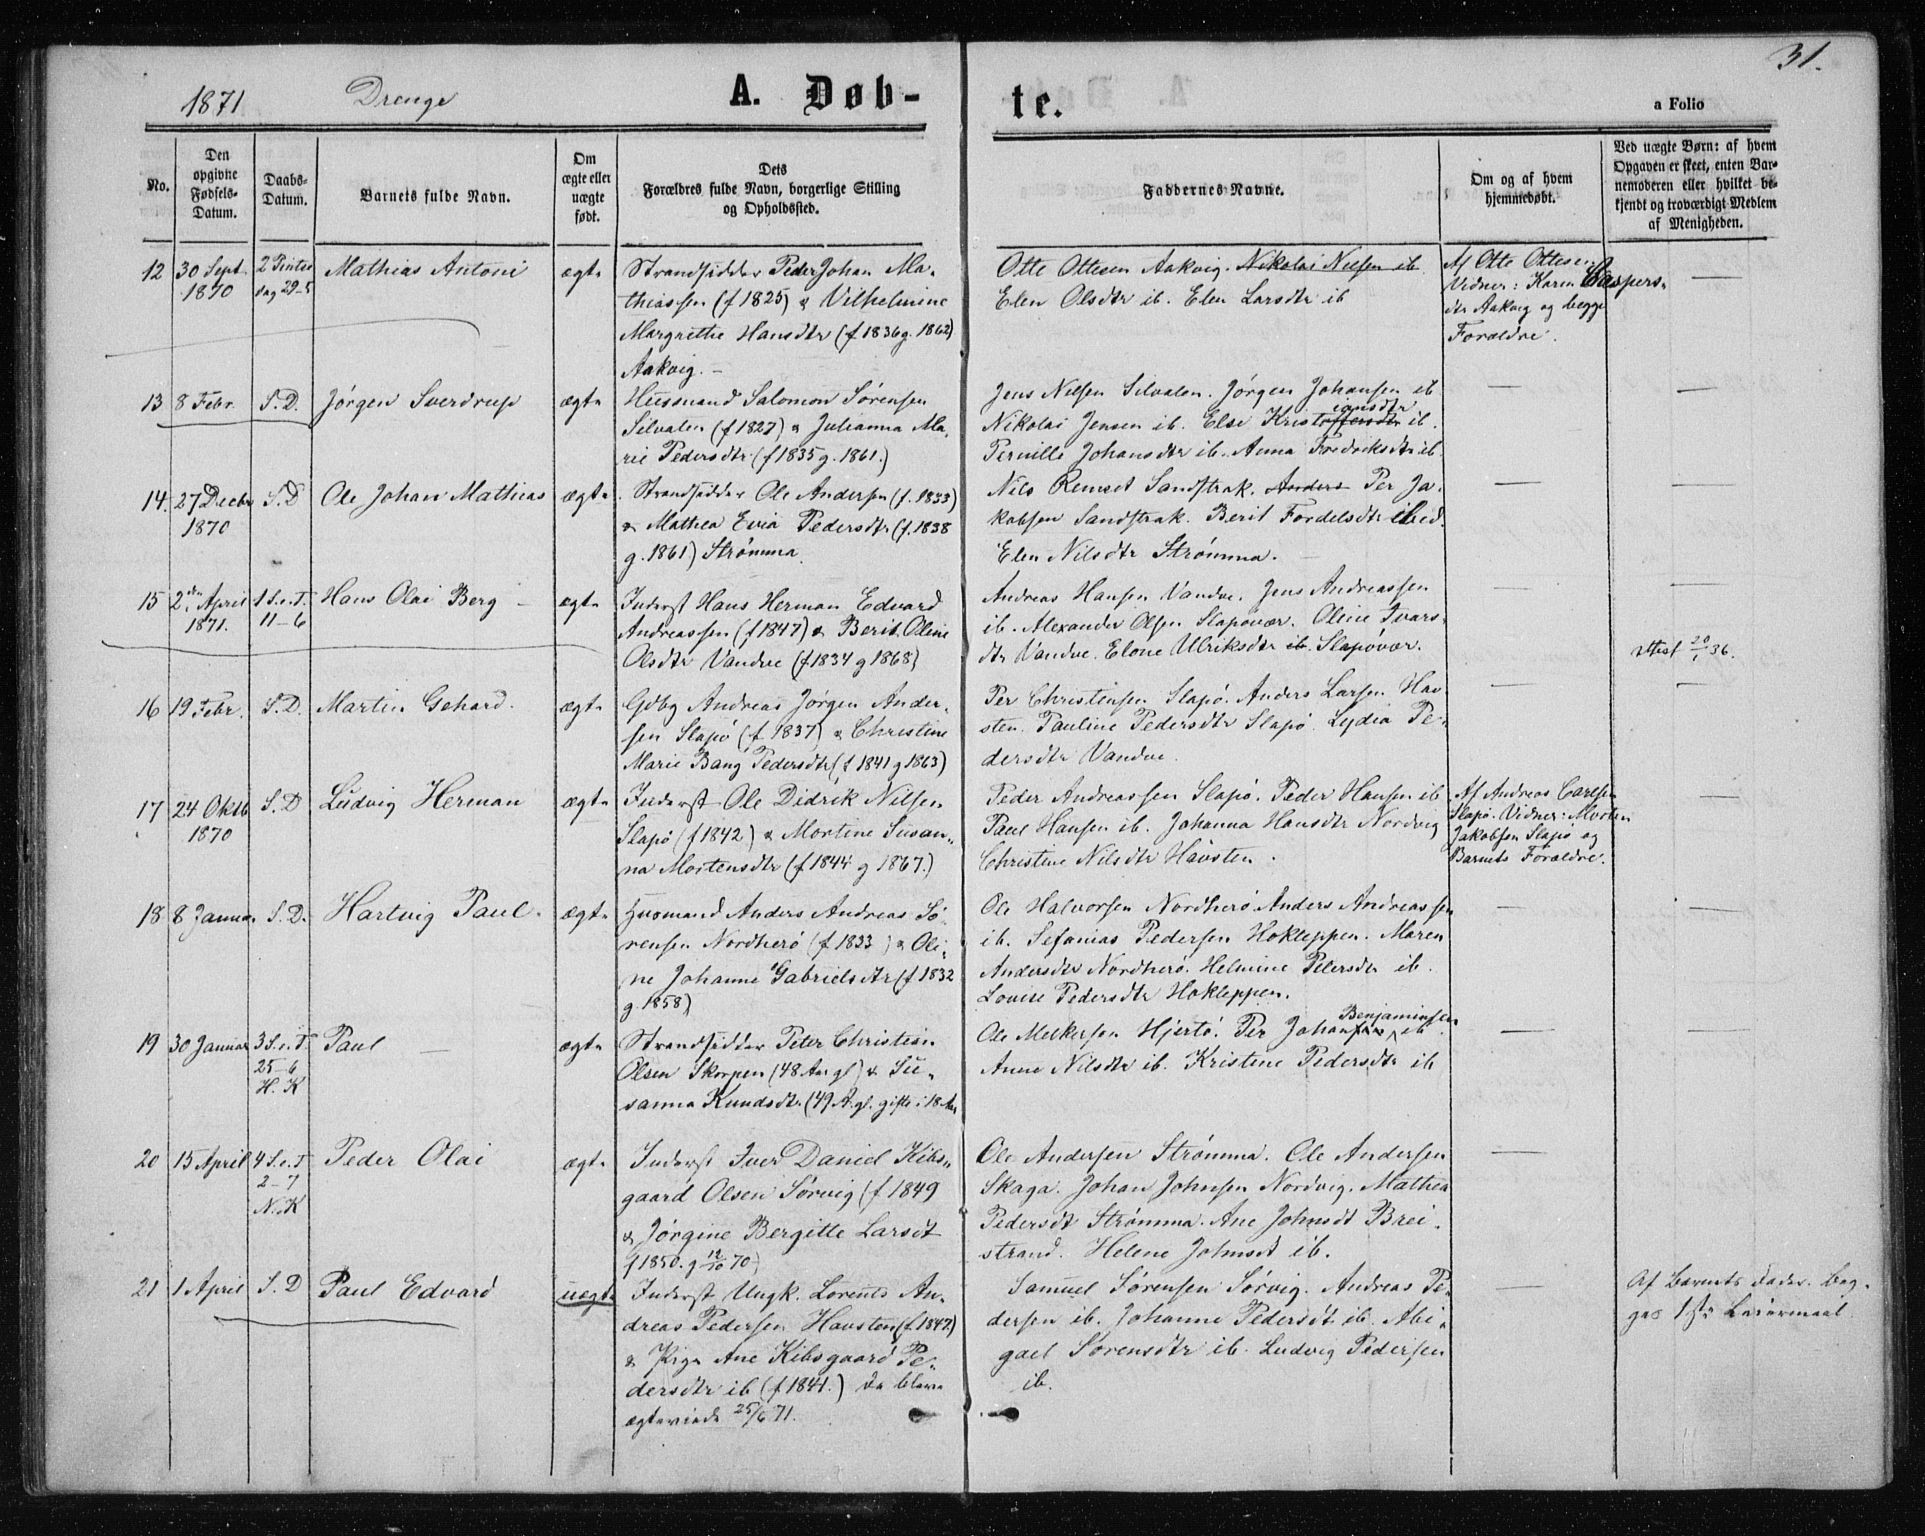 31.
1871 Drenge A. Døb- te. a Folio
No.
Den opgivne Fødsels-Datum.
Daabs-Datum.
Barnets fulde Navn.
Om ægte eller uægte født.
Dets Forældres fulde Navn, borgerlige Stilling og Opholdssted.
Faddernes Navne.
Om og af hvem hjemmedøbt.
Ved uægte Børn: af hvem Opgaven er skeet, enten Barnemoderen eller hvilket bekjendt og troværdigt Medlem af Menigheden.
12 30 Sept. 1870 2 Pintse dag 29-5 Mathias Antoni ægte
Strandsidder Peder Johan Ma-
thiassen (f 1825) & Vilhelmine
Margrethe Hansdtr (f 1836 g. 1862)
Aakvig. –
Otte Ottesen Aakvig. Nikolai Nilsen ib
Elen Olsdtr ib. Elen Larsdtr ib
Af Otte Ottesen
Vidner: Karen Caspers-
dtr Aakvig og begge
Forældre.
13 8 Febr. S. D. Jørgen Sverdrup ægte
Husmand Salomon Sørensen
Silvalen (f 1827) & Julianna Ma-
rie Pedersdtr (f 1835 g. 1861.)
Jens Nilsen Silvalen. Jørgen Johansen ib
Nikolai Jensen ib. Else Kristoffersdtr iansdtr ib.
Pernille Johansdtr ib. Anna Fredriksdtr ib.
14. 27 Decbr 1870 S. D Ole Johan Mathias ægte
Strandsidder Ole Andersen (f. 1833)
& Mathea Evia Pedersdtr (f. 1838
g. 1861) Strømma.
Nils Remset Sandstrak. Anders Per Ja-
kobsen Sandstrak. Berit Fordelsdtr ibid.
Elen Nilsdtr Strømma.
15 2den April 1871. 1 S. e. T. 11-6 Hans Olai Berg – ægte
Inderst Hans Herman Edvard
Andreassen (f 1847) & Berit Oline
Olsdtr Vandve (f 1834 g 1868)
Andreas Hansen Vandve. Jens Andreassen
ib. Alexander Olsen Slapøvær. Oline Ivars-
dtr Vandve. Elone Ulriksdtr ib. Slapøvær.
attest 20/1 36.
16 19 Febr. S. D. Martin Gehard. ægte
Gdbg Andreas Jørgen Ander-
sen Slapø (f 1837) & Christine
Marie Bang Pedersdtr (f 1841 g 1863)
Per Christensen Slapø. Anders Larsen Hav-
sten. Pauline Pedersdtr Slapø. Lydia Pe-
dersdtr Vandve.
17 24 Oktb 1870 S. D Ludvig Herman ægte
Inderst Ole Didrik Nilsen
Slapø (f 1842) & Mortine Susan-
na Mortensdtr (f 1844 g 1867.)
Peder Andreassen Slapø. Peder Hansen ib
Paul Hansen ib. Johanna Hansdtr Nordvig
Christine Nilsdtr Havsten.
Af Andreas Carlsen
Slapø. Vidner: Morten
Jakobsen Slapø og
Barnets Forældre.
18 8 Januar S. D. Hartvig Paul. ægte
Husmand Anders Andreas Sø-
rensen Nordherø (f 1833) & Oli-
ne Johanne Gabrielsdtr (f 1832
g. 1858)
Ole Halvorsen Nordherø. Anders Andreassen
ib. Sefanias Pedersen Hokleppen. Maren
Andersdtr Nordherø. Helmine Petersdtr ib.
Lovise Pedersdtr Hokleppen.
19 30 Januar 3 S. e. T 25-6 H. K Paul – ægte
Strandsidder Peter Christian
Olsen Skorpen (48 Aar gl) & Su-
sanna Knudsdtr (49 A. gl. gifte i 18 Aar
Ole Melkersen Hjertø. Per Johansen Benjaminsen ib
Anne Nilsdtr ib. Kristine Pedersdtr ib
20 15 April 4 S. e. T 2-7 N. K Peder Olai ægte
Inderst Iver Daniel Kibs-
gaard Olsen Sørvig (f 1849
& Jørgine Bergitte Larsdt
f 1850. g 12/10 70)
Ole Andersen Strømma. Ole Andersen
Skaga. Johan Johnsen Nordvig. Mathea
Pedersdt Strømma. Ane Johnsdt Brei-
strand. Helene Johnsdt ib.
21 1 April S. D Paul Edvard uægte
Inderst Ungk. Lorents An-
dreas Pedersen Havsten (f. 1842)
& Pige Ane Kibsgaard Pe-
dersdtr ib (f 1841.) da bleve
ægteviede 25/6 71.
Samuel Sørensen Sørvig. Andreas Pe-
dersen ib. Johanne Pedersdt ib. Abi-
gael Sørensdtr ib. Ludvig Pedersen
ib.
Af Barnets Fader. Beg-
ges 1ste Leiermaal